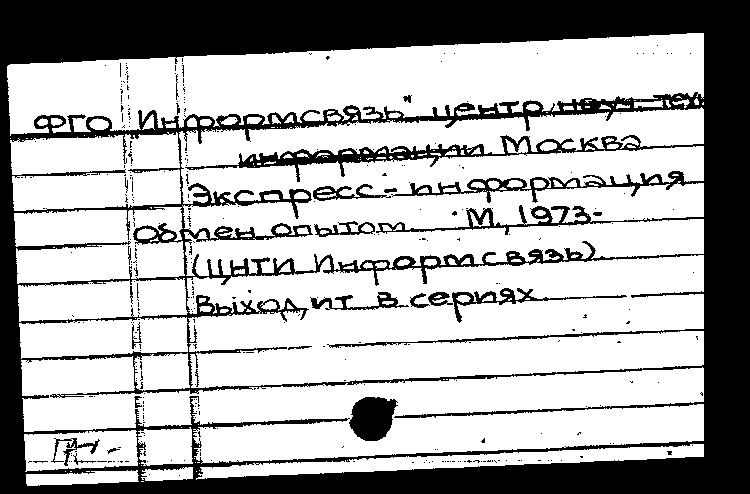 ФГО "Информсвязь" центр науч. тех
информации Москва
Экспресс-информация
Обмен опытом. М., 1973-
(ЦНТИ Информсвязь).
Выходит в сериях.